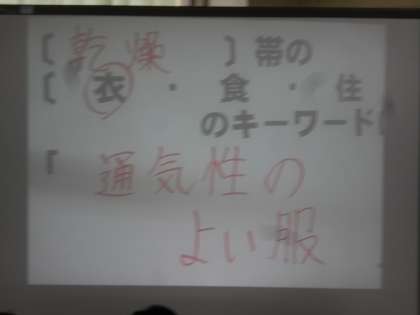 【乾燥 】帯の
【衣・食・住
のキーワード】
『通気性の
よい服